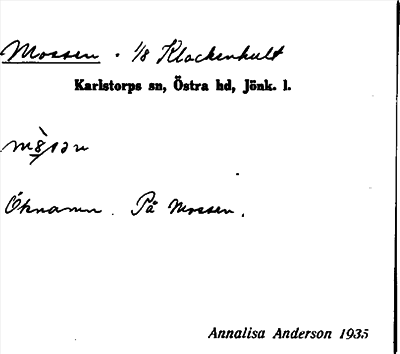 Mossen . 1/8 Klockenhult
Karlstorps sn, Östra hd, Jönk. l.
Öknamn. På Mossen.
Annalisa Anderson 1935